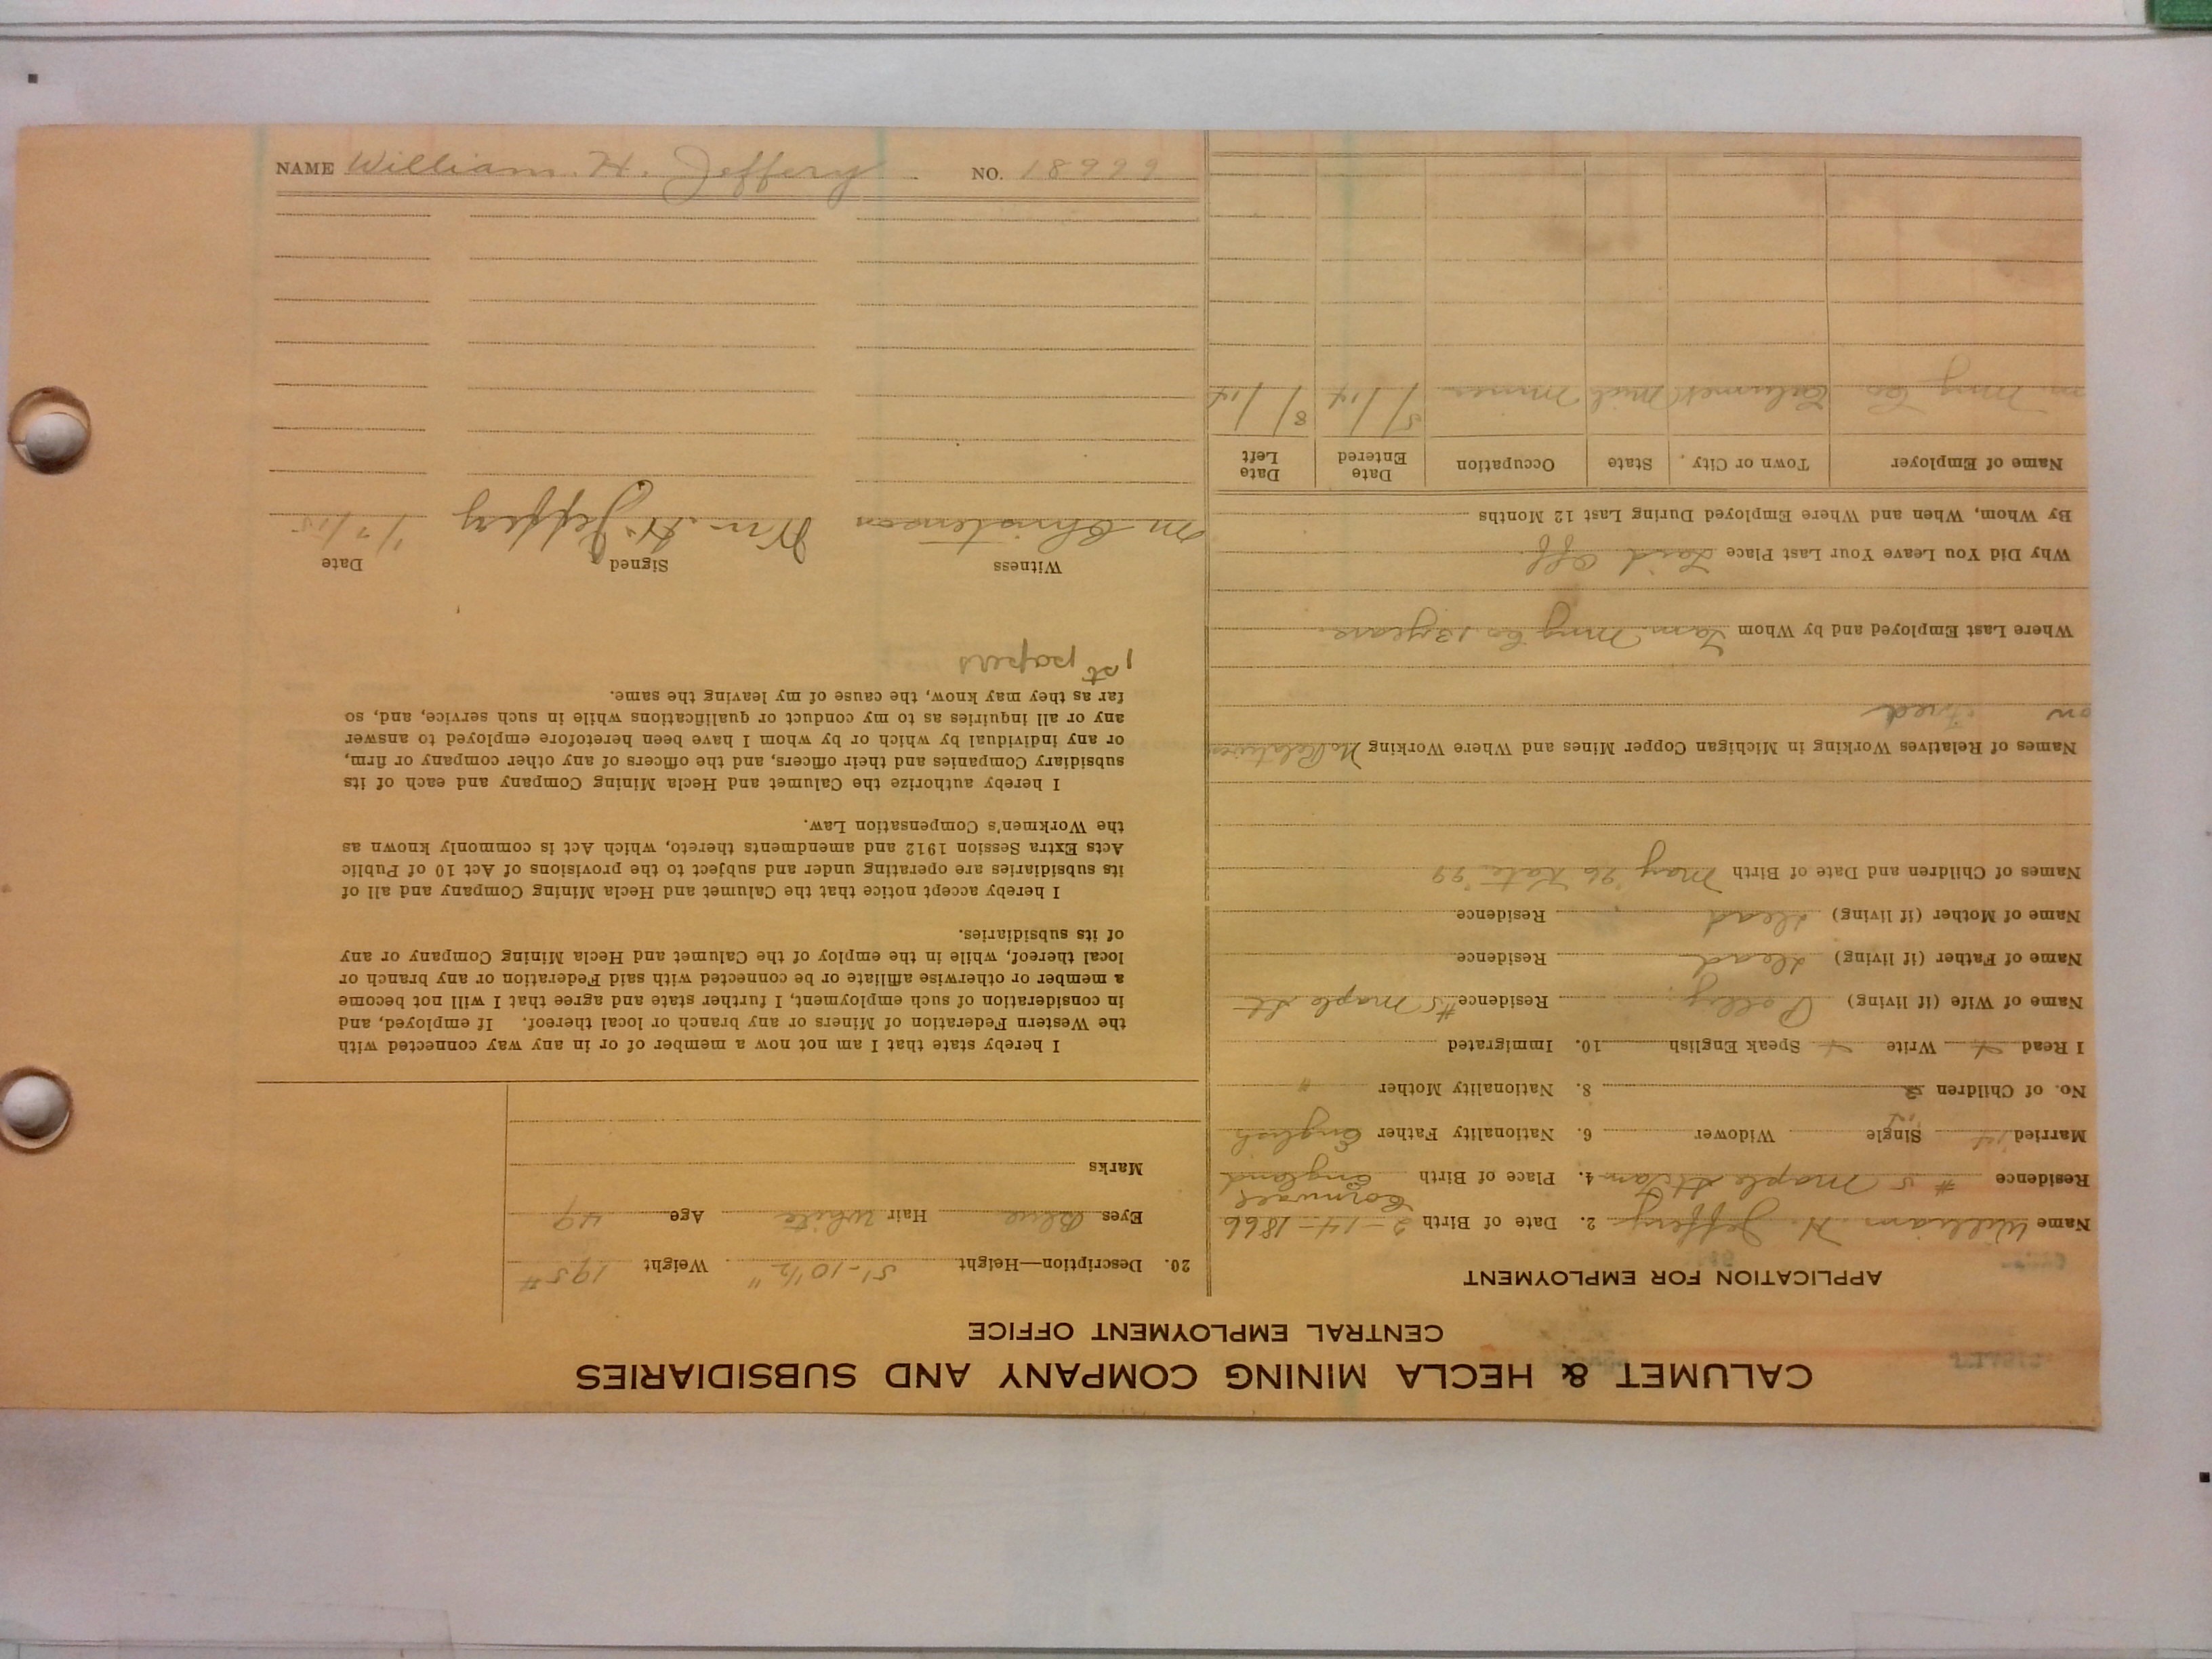 CALUMET & HECLA MINING COMPANY AND SUBSIDIARIES
CENTRAL EMPLOYMENT OFFICE
APPLICATION FOR EMPLOYMENT
Name William H. Jeffery 2. Date of Birth 2-14-1866
Residence #5 Maple St Lam 4. Place of Birth Cornwall England
Married 1st Single Widower 6. Nationality Father English
No. of Children 8. Nationality Mother "
I Read Write Speak English 10. Immigrated
Name of Wife (if living) Polly Residence #5 Maple St
Name of Father (if living) dead Residence
Name of Mother (if living) dead Residence
Names of Children and Date of Birth Mary '96 Kate '99
Names of Relatives Working in Michigan Copper Mines and Where Working No Relatives
Fred
Where Last Employed and by Whom Tam. Mng Co 13 years
Why Did You Leave Your Last Place Laid Off
By Whom, When and Where Employed During Last 12 Months
Name of Employer Town or City State Occupation Date Entered Date Left
Mng Co Calumet Mich Miner 5/1/14 8/1/14
20. Description—Height 5'-10½" Weight 195#
Eyes Blue Hair White Age 49
Marks
I hereby state that I am not now a member of or in any way connected with
the Western Federation of Miners or any branch or local thereof. If employed, and
in consideration of such employment, I further state and agree that I will not become
a member or otherwise affiliate or be connected with said Federation or any branch or
local thereof, while in the employ of the Calumet and Hecla Mining Company or any
of its subsidiaries.
I hereby accept notice that the Calumet and Hecla Mining Company and all of
its subsidiaries are operating under and subject to the provisions of Act 10 of Public
Acts Extra Session 1912 and amendments thereto, which Act is commonly known as
the Workmen's Compensation Law.
I hereby authorize the Calumet and Hecla Mining Company and each of its
subsidiary Companies and their officers, and the officers of any other company or firm,
or any individual by which or by whom I have been heretofore employed to answer
any or all inquiries as to my conduct or qualifications while in such service, and, so
far as they may know, the cause of my leaving the same.
1st papers
Witness Signed Date
M Christenson Wm. H. Jeffery
NAME William. H. Jeffery NO. 18999